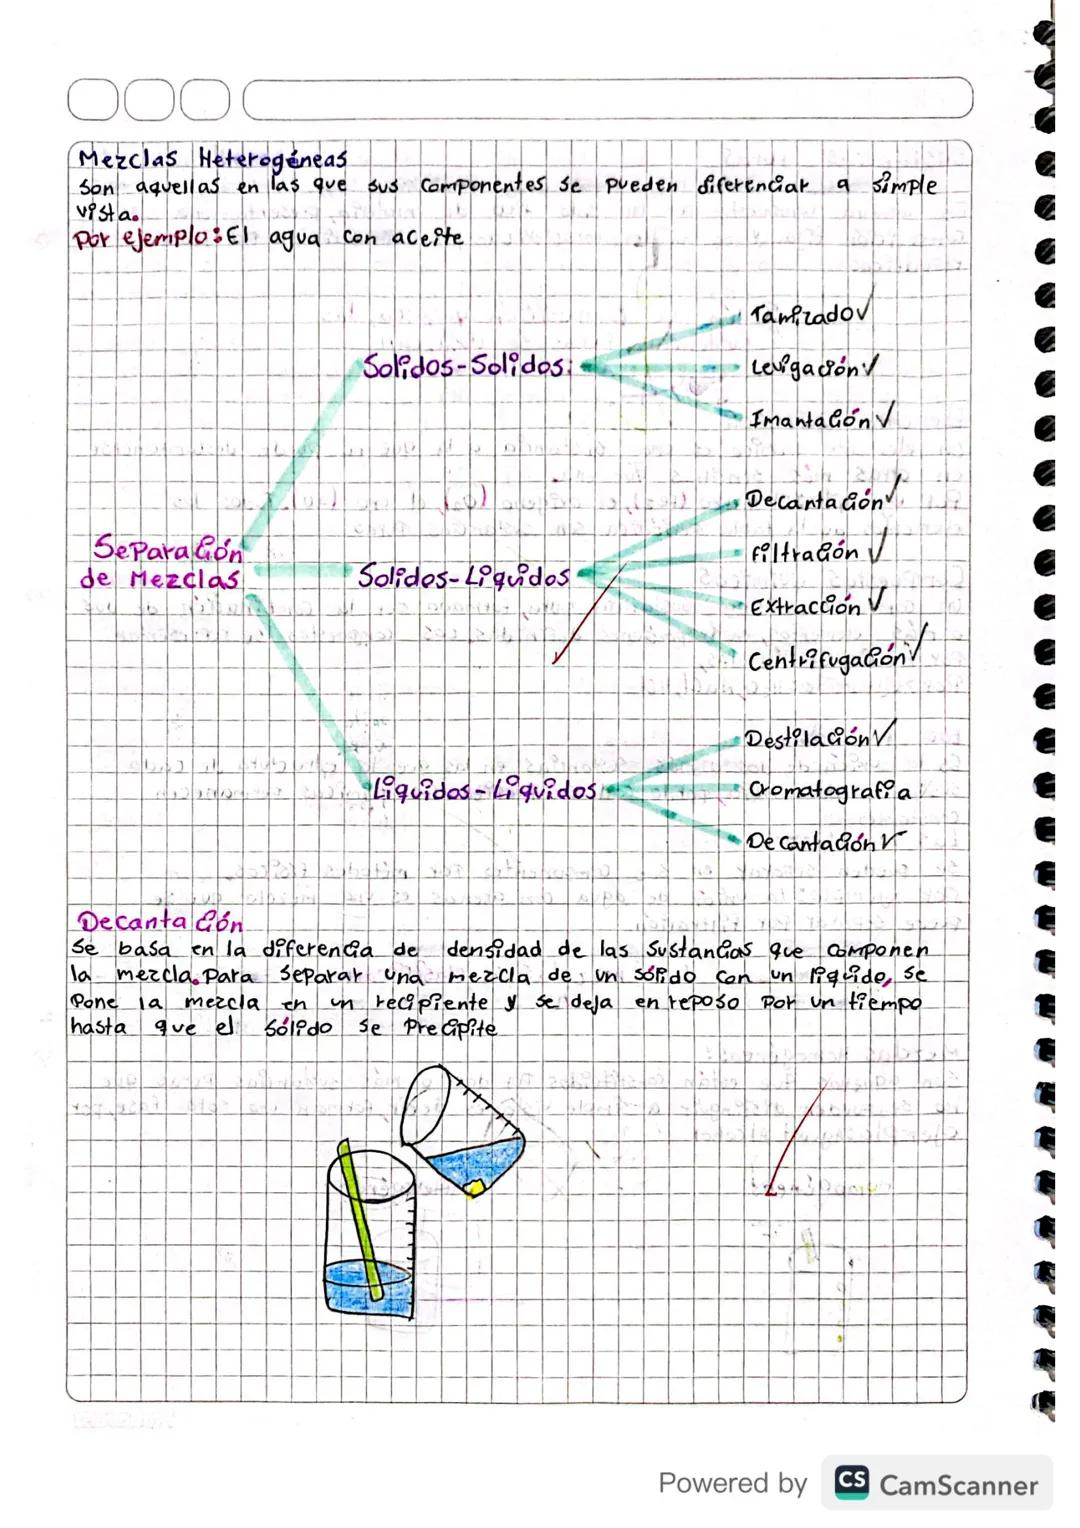 Mezclas Heterogéneas
Son aquellas en las que sus componentes se pueden diferenciar a simple
vista.
Por ejemplo: El agua con aceite
Tamizado✓
Solidos-Solidos:
Levigación✓
Imantación✓
Decantación✓
Separación
de Mezclas
Filtración ✓
Solidos-Liquidos
Extracción ✓
Centrifugación✓
Destilación✓
Liquidos-Liquidos
Cromatografia
Decantación✓
Decantación
Se basa en la diferencia de densidad de las sustancias que componen
la mezcla. Para separar una mezcla de un sólido con un liquido, se
Pone la mezcla en un recipiente y se deja en reposo por un tiempo
hasta que el sólido se Precipite
Powered by CS CamScanner